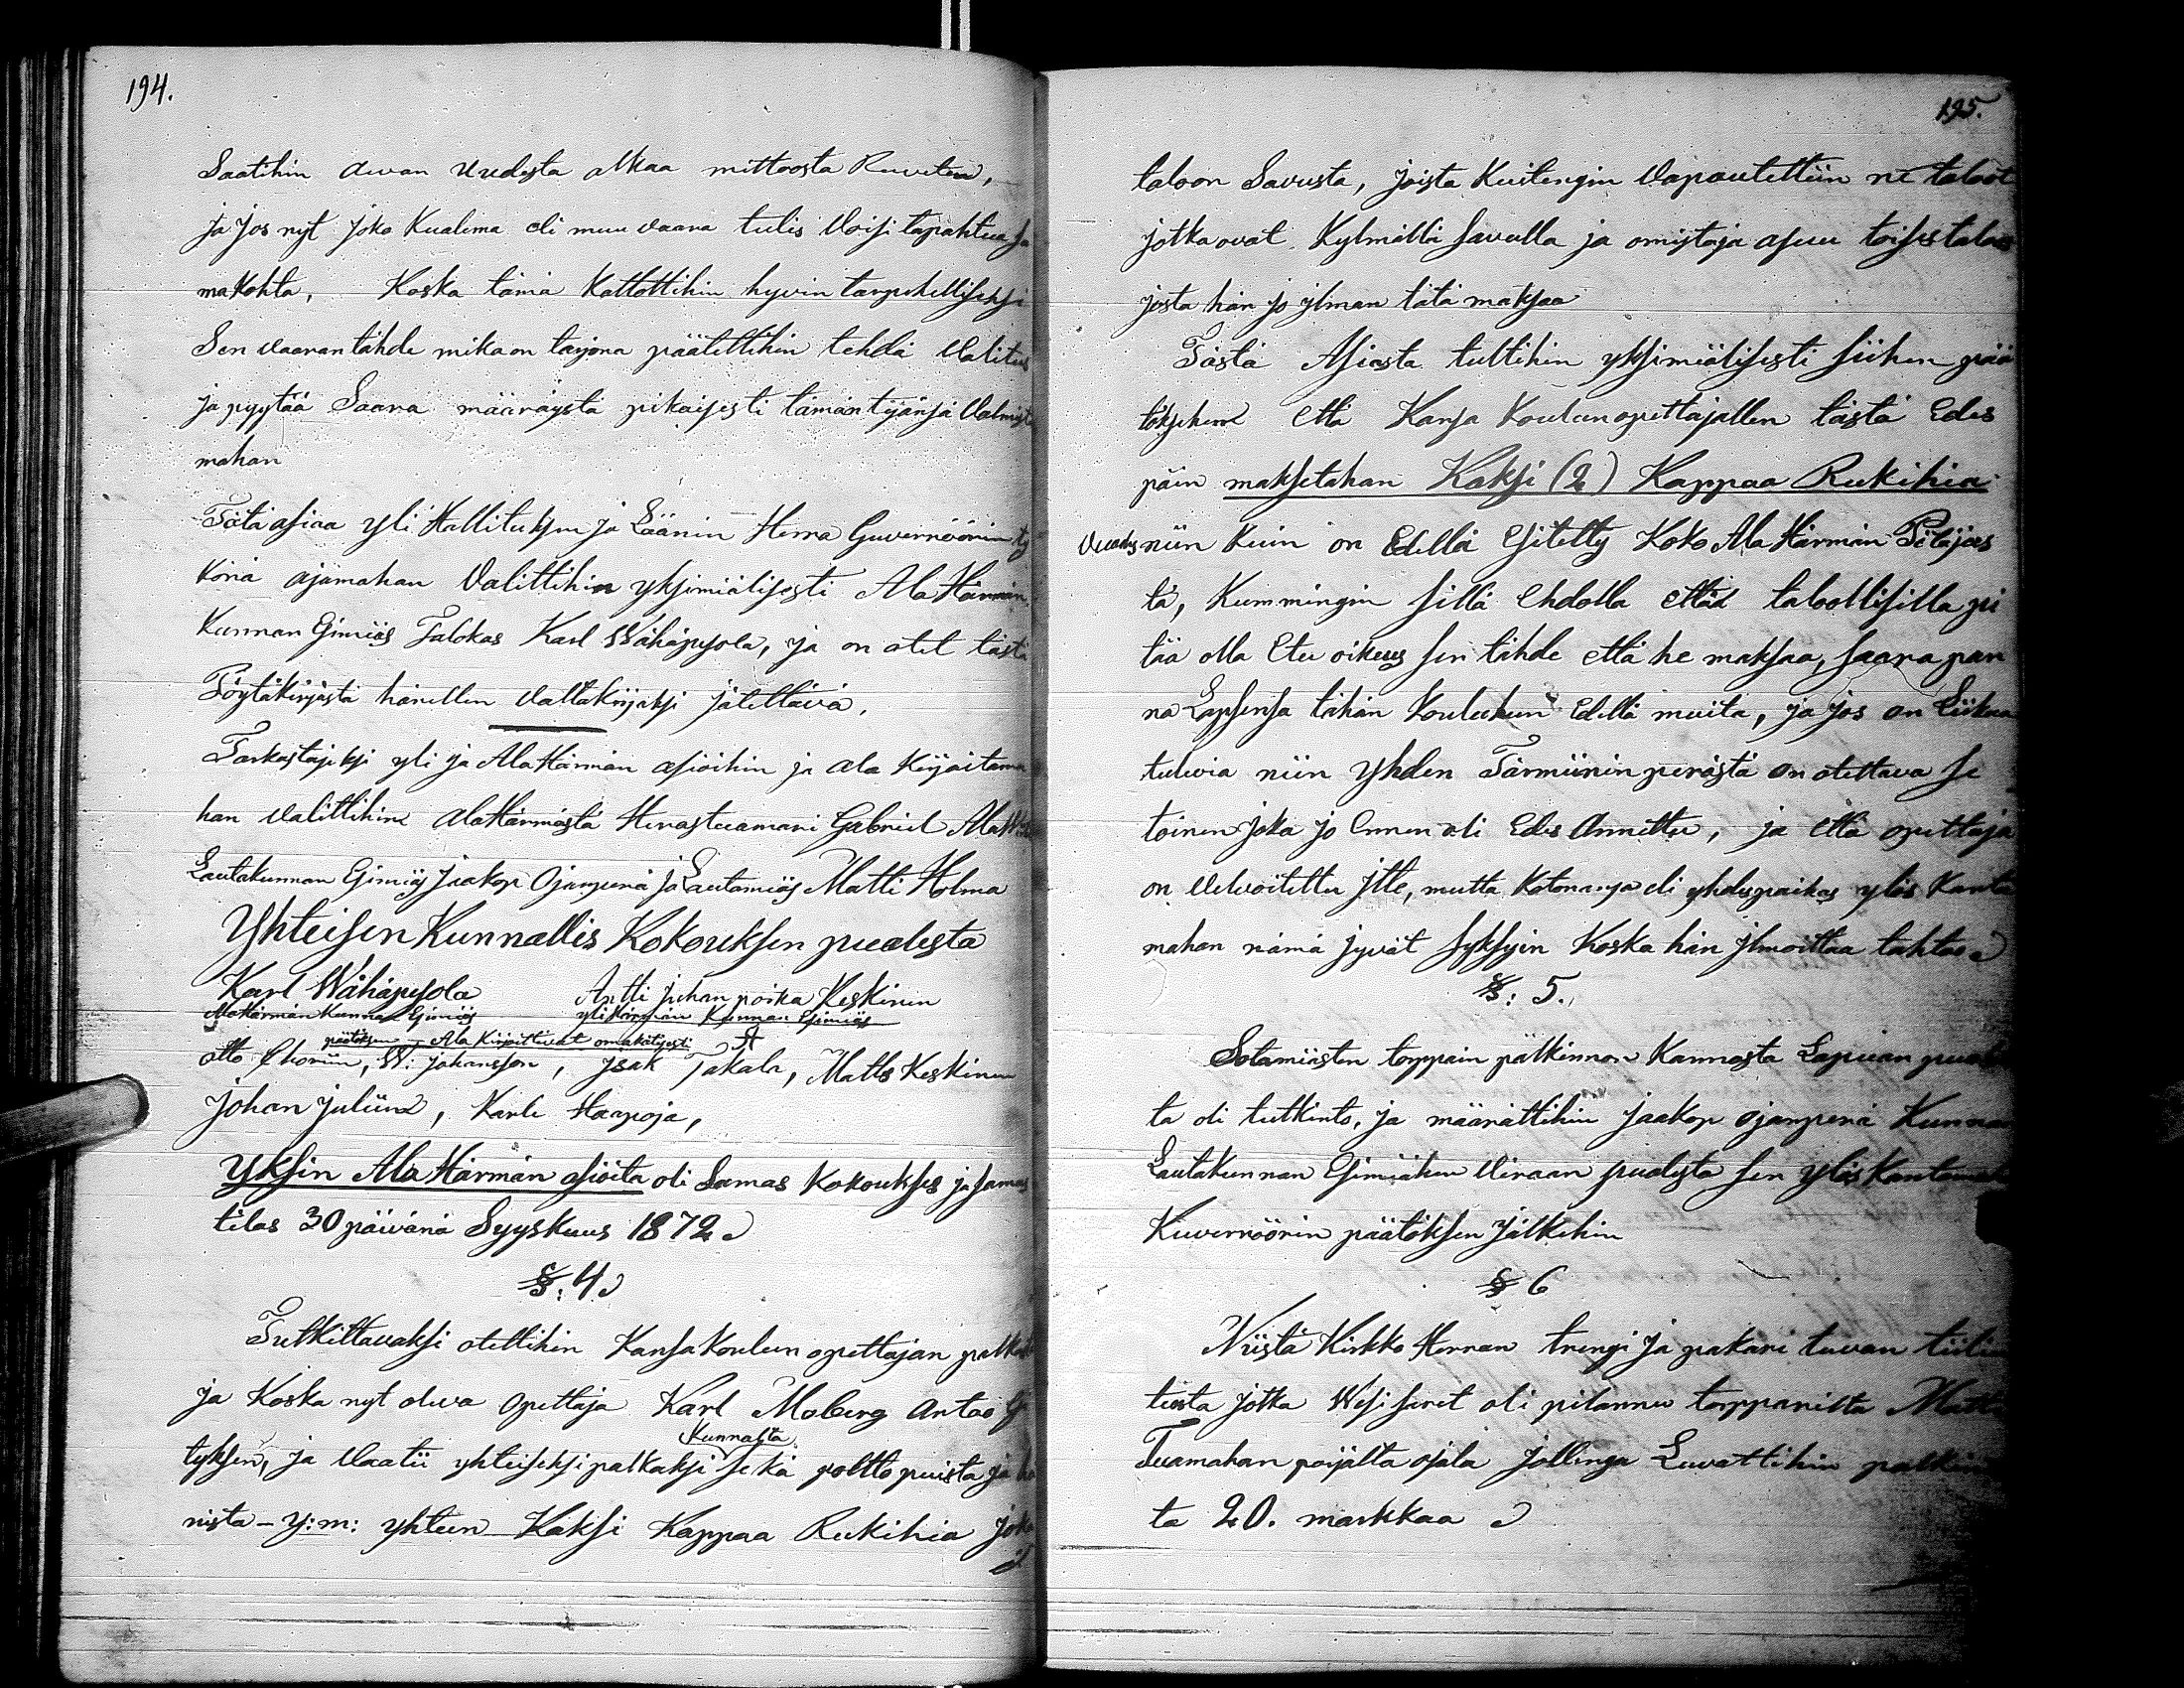 194.
Saatihin aivan Uudesta alkaa mittoosta Ruveten,
ja jos nyt joko Kualema eli muu vaara tulis Voisi tapahtua sa
makohta, Koska tämä Kattottihin hyvin tarpehelliseksi
Sen vaaran tähde mikä on tarjona päätettihin tehdä Valitus
ja pyytää Saara määräystä pikaisesti tämän työnsä Valmista
mahan
Tätä asiaa yli Hallituksen ja Läänin Herra Guvernöörin ty
könä ajamahan Valittihin yksimiälisesti Ala Härmän
Kunnan Esimiäs Talokas Karl Wähäpesola, ja on otet tästä
Pöytäkirjasta hänellen Valtakirjaksi jätettävä.
Tarkastajiksi yli ja Ala Härmän asioihin ja ala Kirjoitama
han Valittihin AlaHärmästä Herastuamari Gabriel
Lautakunnan Esimiäs Jaakop Ojanperä ja Lautamiäs Matti Holma
Yhteisen Kunnallis Kokouksen puolesta
Karl Wähäpesola Antti Juhan poika Keskinen
AlaHärmän Kunnan Esimiäs yliHärmän Kunnan Esimiäs
päätöksen Ala Kirjoittivat omakätisesti
otto Thorén, W: Johansson, Isak Takala, Matts Keskinen
Johan Julin, Karle Haapoja,
Yksin Ala Härmän asioita oli Samas Kokoukses ja samas
tilas 30 päivänä Syyskuus 1872
§: 4
Tutkittavaksi otettihin Kansakoulun opettajan palkka
ja Koska nyt oleva Opettaja Karl Moberg antoo Esi
tyksen, ja Vaatii yhteiseksi palkaksi Kunnalta sekä poltto puista ja
nista - y: m: yhteen Kaksi Kappaa Rukihia joka
195.
taloon Savusta, joista Kuitengin Vapautettiin ne taloot
jotka ovat Kylmällä savulla ja omistaja asuu toises taloos
josta hän jo ilman tätä maksaa
Tästä Asiasta tultihin yksimiälisesti siihen pää
töksehen että Kansa Koulun opettajallen tästä Edes
päin maksetahan Kaksi (2) Kappaa Rukihia
Vuodes niin kuin on Edellä Esitetty Koko Ala Härmän Pitäjäs
tä, Kummingin sillä Ehdolla että taloollisilla pi
tää olla Etu oikeus sen tähde että he maksaa, saara pan
na Lapsensa tähän kouluhun Edellä muita, ja jos on Liikaa
tulevia niin yhden Tärmiinin perästä on otettava se
toinen joka jo Ennen oli Edes Annettu, ja että opettaja
on Velvoitettu itte, mutta kotonansa eli yhdespaikas ylös Kanta
mahan nämä jyvät syksyin Koska hän ilmoittaa tahtoo
§: 5.
Sotamiästen torppain pälkinnon Kannosta Lapuan puoles
ta oli tutkinto, ja määrättihin Jaakop ojanperä Kunnan
Lautakunnan Esimiähen Viraan puolesta sen ylöskantamahan
Kuvernöörin päätöksen Jälkehin
§ 6
Niistä Kirkko Herran trengi ja pakari tuvan tiili
tiästä jotka Wesisuret oli pitänny torppanilta Matti
Tuamahan pojalta ojala jollenga Luvattihin palkin
ta 20. markkaa